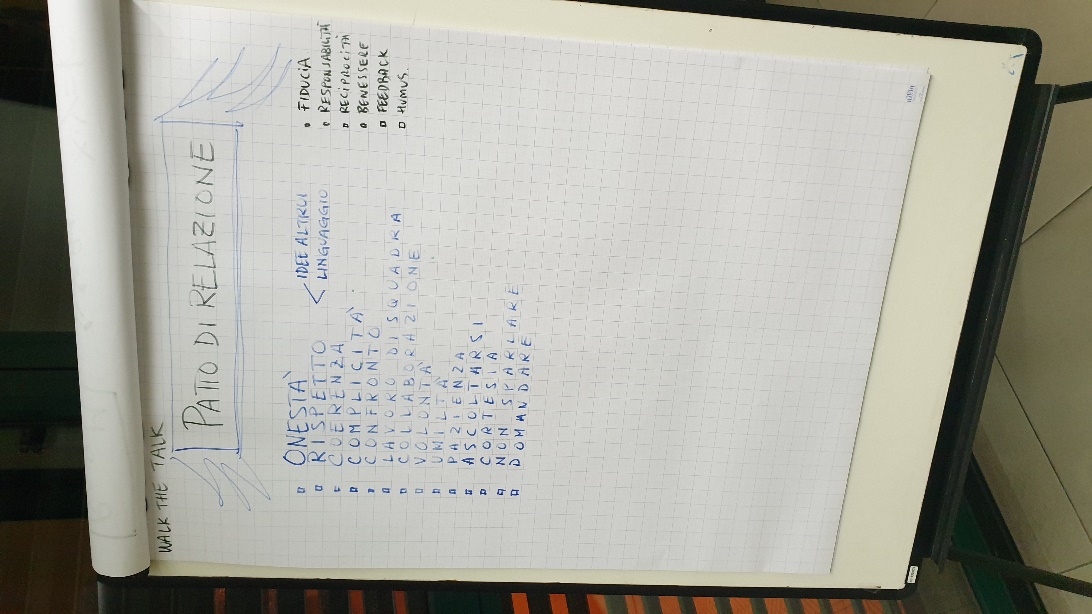 WALK THE TALK
PATTO DI RELAZIONE
ONESTÀ
RISPETTO < IDEE ALTRUI
LINGUAGGIO
COERENZA
COMPLICITÀ
CONFRONTO
LAVORO DI SQUADRA
COLLABORAZIONE
VOLONTÀ
UMILTÀ
PAZIENZA
ASCOLTARSI
CORTESIA
NON SPARLARE
DOMANDARE
FIDUCIA
RESPONSABILITÀ
RECIPROCITÀ
BENESSERE
FEEDBACK
HUMUS